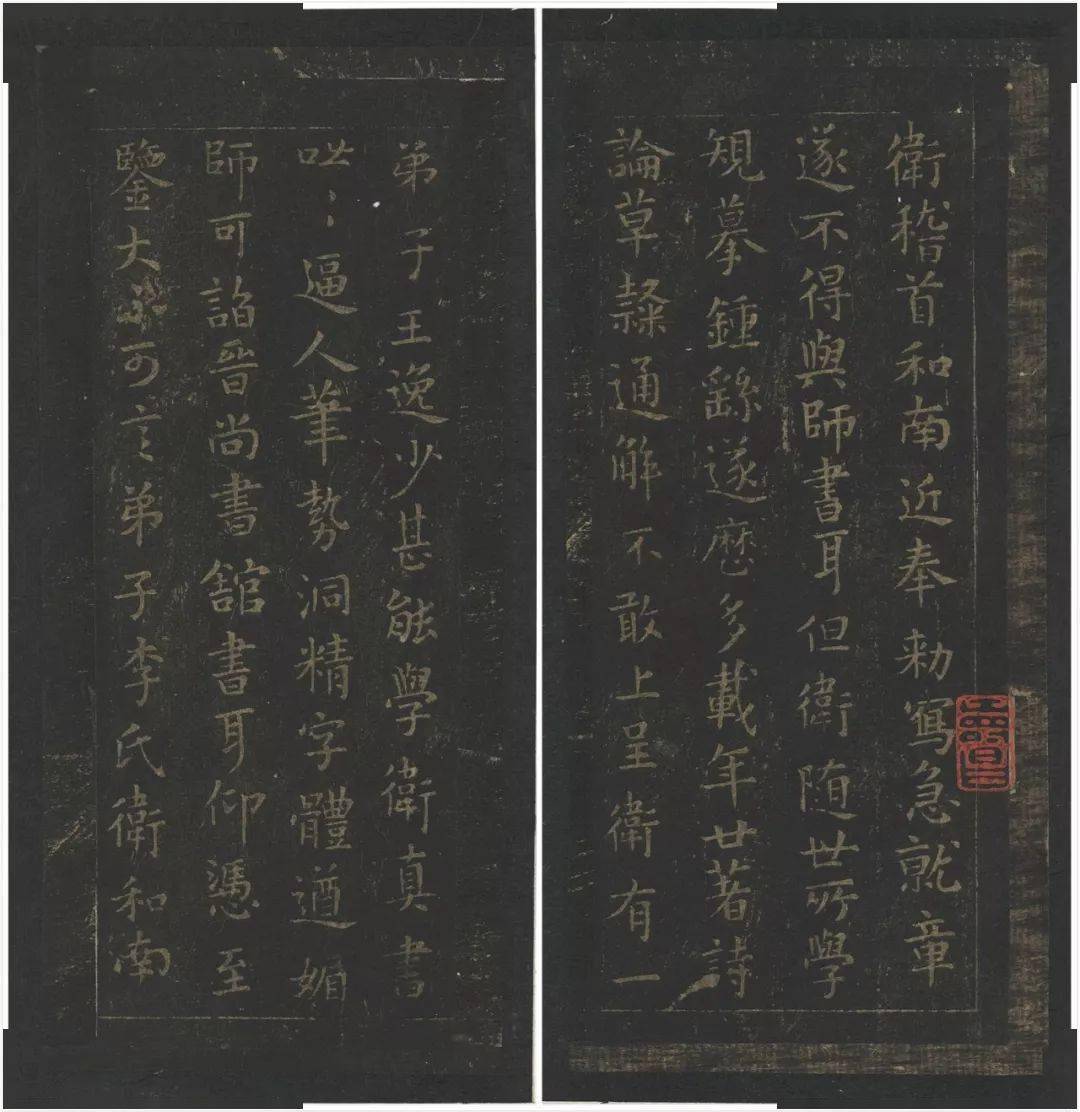 衛稽首和南近奉勑寫急就章
遂不得與師書耳但衛随世所學
規摹鍾繇遂歷多載年廿著詩
論草隸通解不敢上呈衛有一
弟子王逸少甚能學衛真書
咄〻逼人筆勢洞精字體遒媚
師可詣晉尚書舘書耳仰憑至
鑒大不可言弟子李氏衛和南